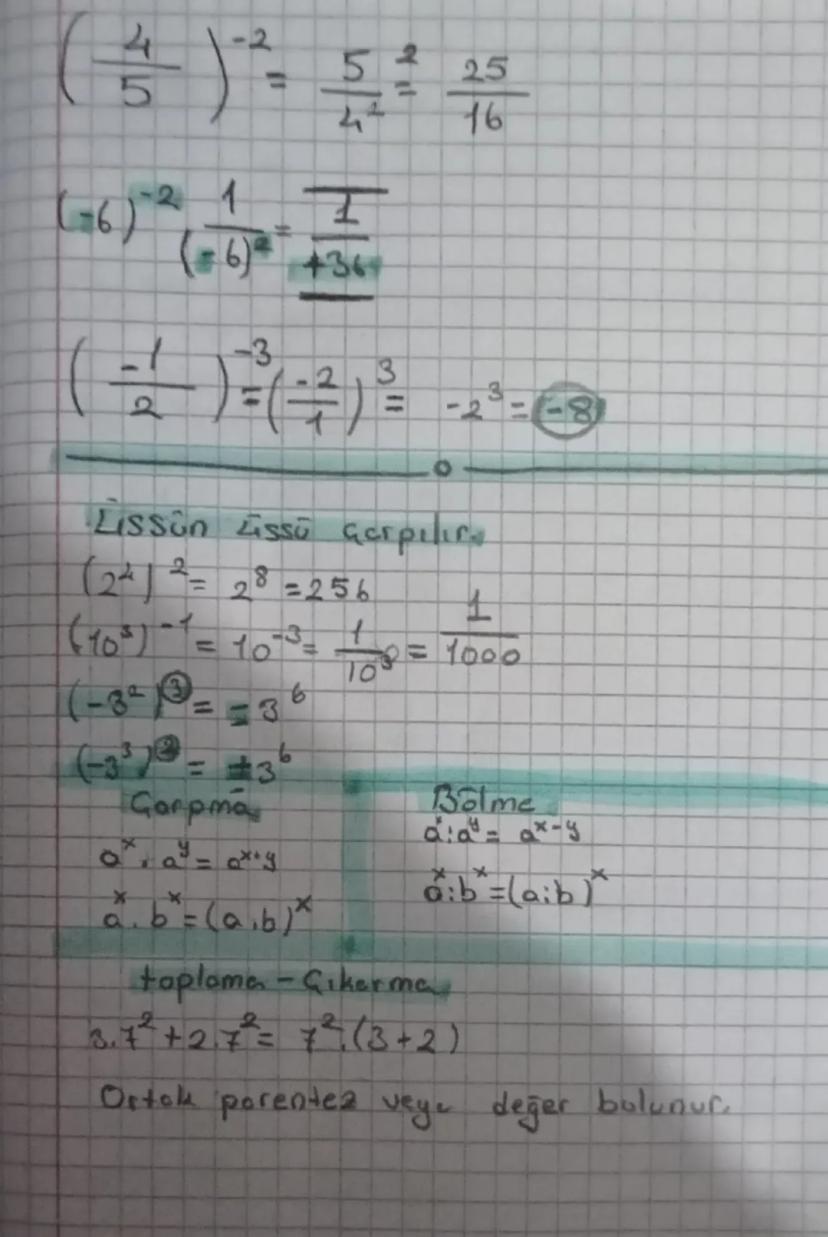 (4/5)⁻² = 5²/4² = 25/16
(-6)⁻² 1/(-6)² = 1/+36
(-1/2)⁻³ = (-2/1)³ = -2³ = -8
Üssün üssü çarpılır.
(2⁴)² = 2⁸ = 256
(10³)⁻¹ = 10⁻³ = 1/10³ = 1/1000
(-3²)³ = -3⁶
(-3³)² = +3⁶
Çarpma
aˣ . aʸ = aˣ⁺ʸ
aˣ . bˣ = (a.b)ˣ
Bölme
aˣ:aʸ = aˣ⁻ʸ
aˣ:bˣ = (a:b)ˣ
toplama - Çıkarma
3.7² + 2.7² = 7².(3+2)
Ortak parentez veya değer bulunur.